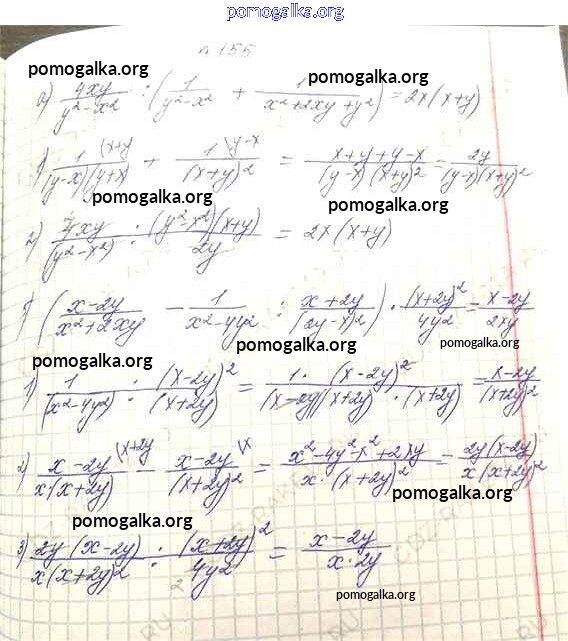 pomogalka.org
n 155
pomogalka.org pomogalka.org
а) 4xy/(y²-x²) : (1/(y²-x²) + 1/(x²+2xy+y²)) = 2x(x+y)
1) 1/((y-x)(y+x)) (x+y + 1/(x+y)² \y-x = (x+y+y-x)/((y-x)(x+y)²) = 2y/((y-x)(x+y)²)
pomogalka.org pomogalka.org
2) 4xy/(y²-x²) · (y²-x²)(x+y)/2y = 2x(x+y)
pomogalka.org
б) (x-2y)/(x²+2xy) - 1/(x²-4y²) : (x+2y)/(2y-x)²) · (x+2y)²/4y² = (x-2y)/2xy
pomogalka.org pomogalka.org pomogalka.org
1) 1/(x²-4y²) · (x-2y)²/(x+2y) = 1·(x-2y)²/((x-2y)(x+2y)·(x+2y)) = (x-2y)/(x+2y)²
2) (x-2y)/(x(x+2y)) (x+2y - (x-2y)/(x+2y)² \x = (x²-4y²-x²+2xy)/(x·(x+2y)²) = 2y(x-2y)/(x(x+2y)²)
pomogalka.org
pomogalka.org
3) 2y(x-2y)/(x(x+2y)²) · (x+2y)²/4y² = (x-2y)/(x·2y)
pomogalka.org